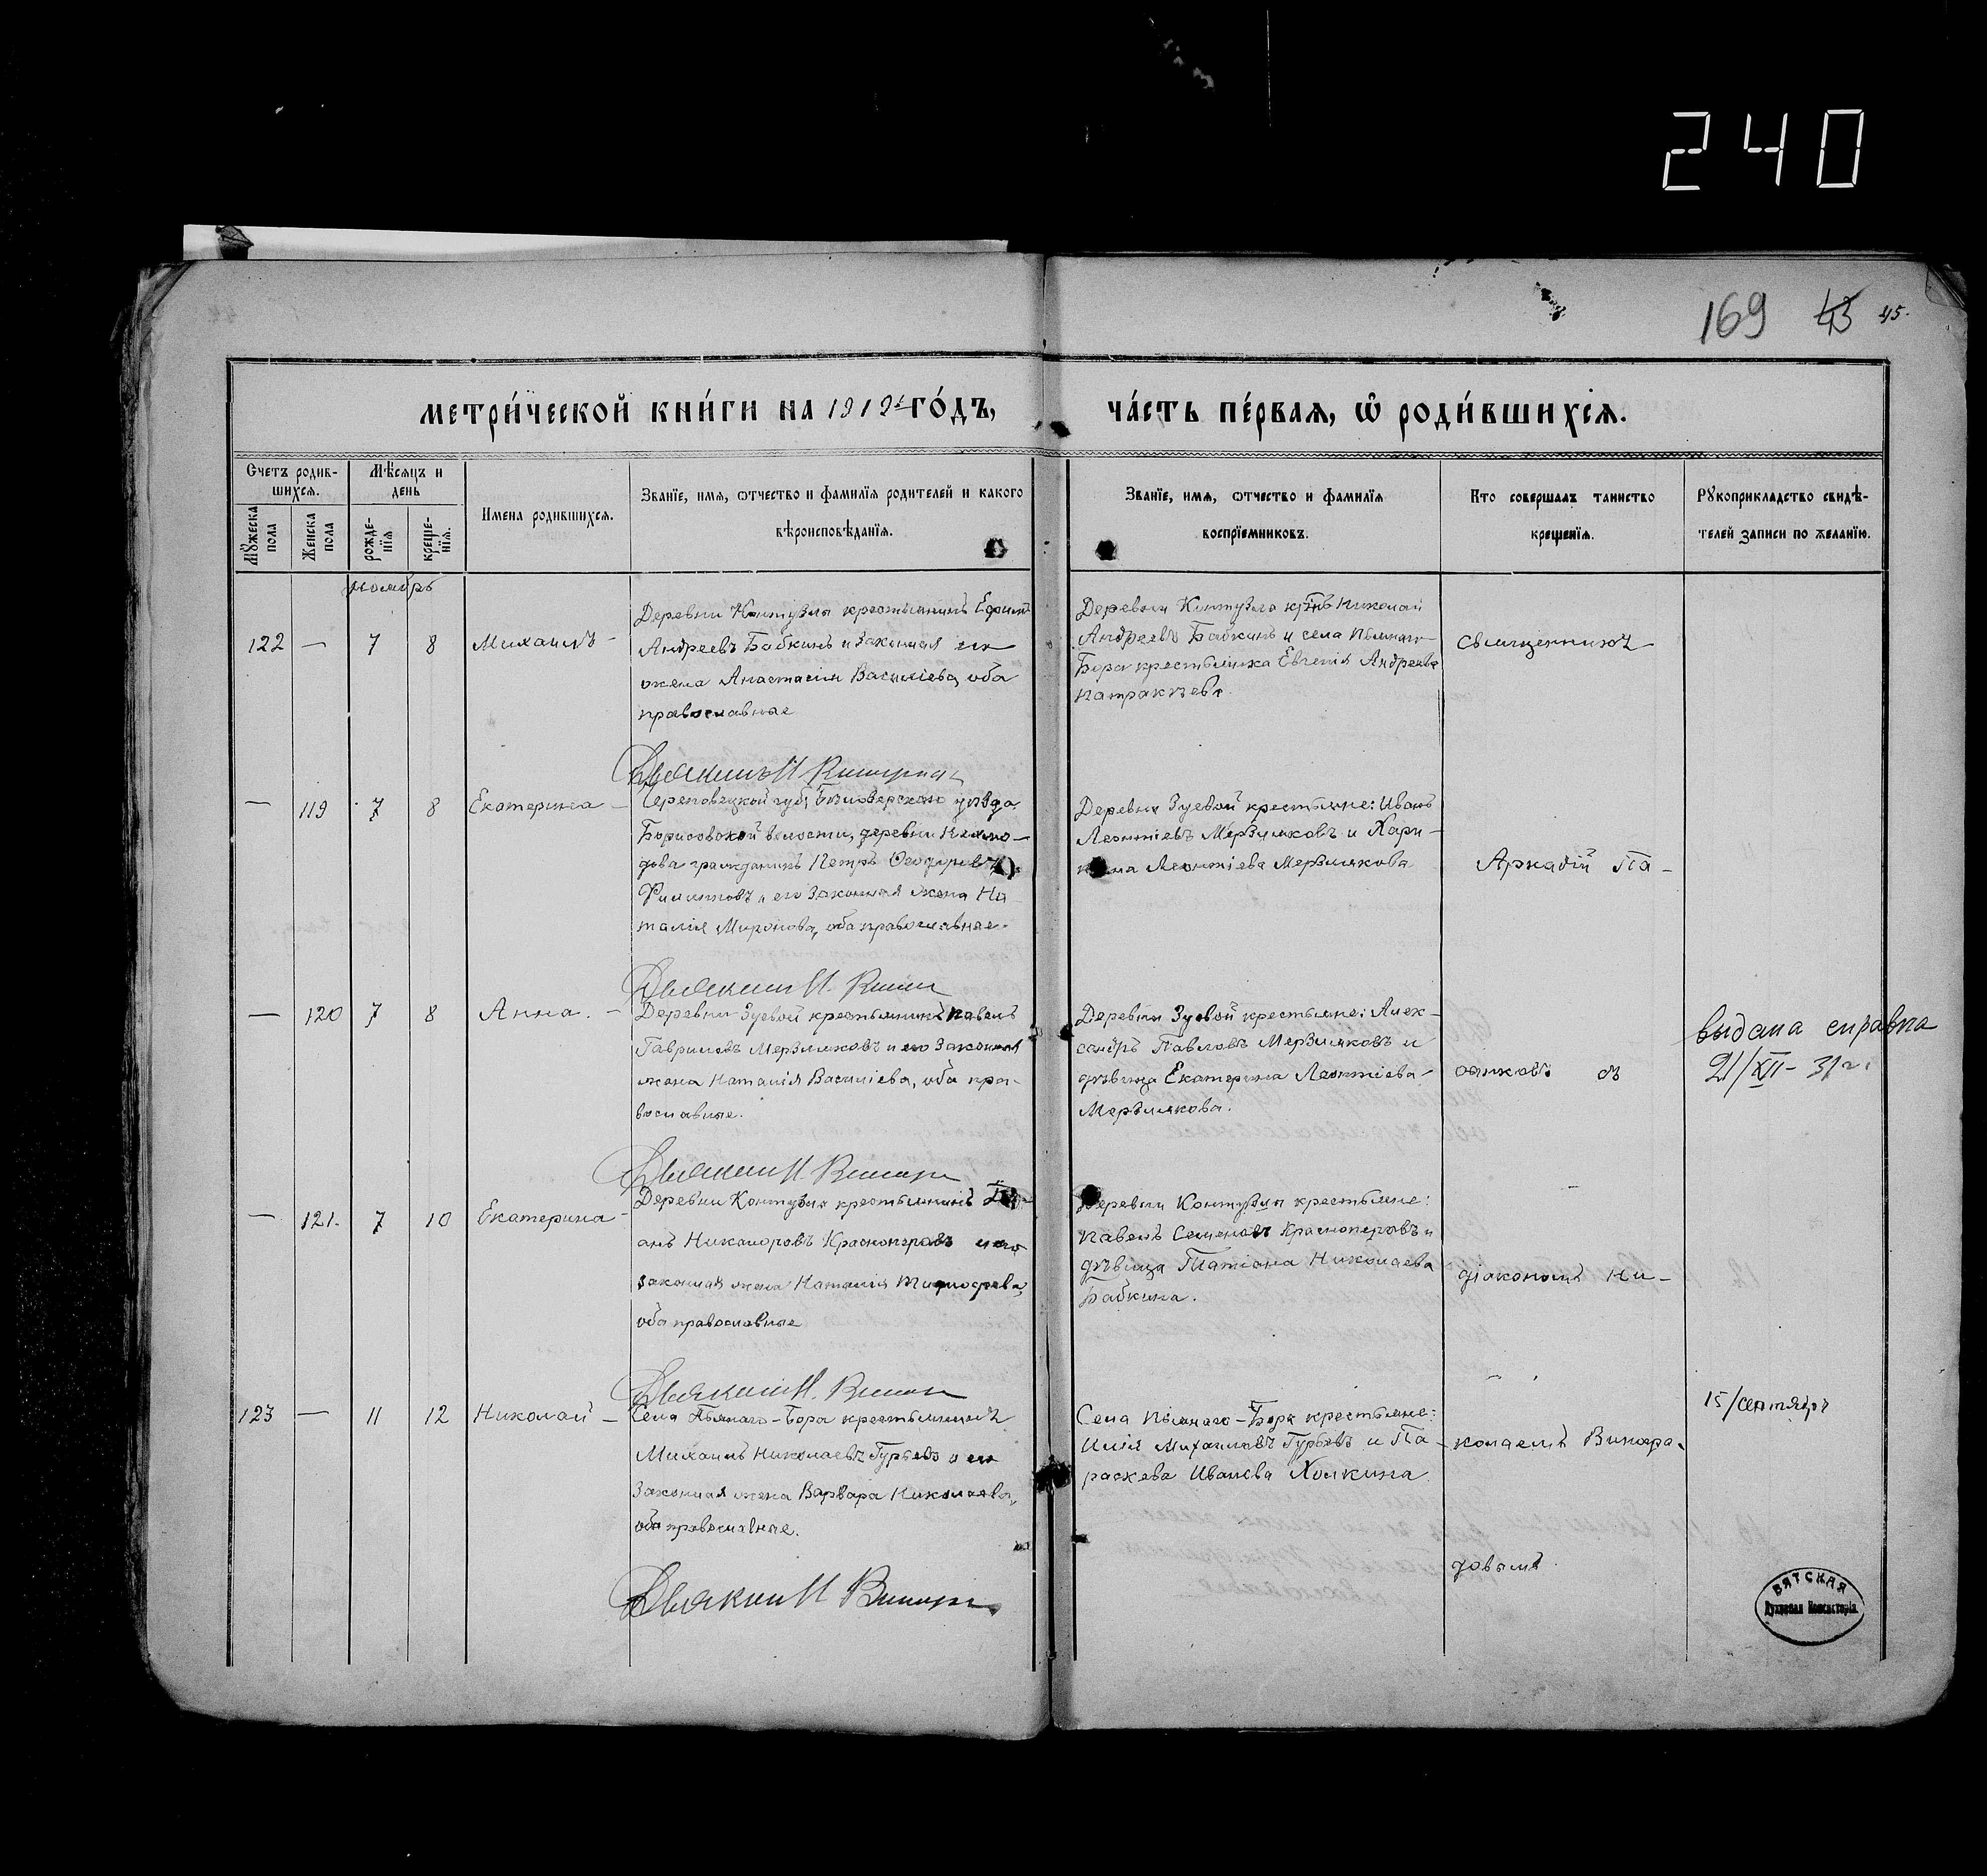 240
169 43 45.
метри́ческой кни́ги на 1919 го́дъ,
ча́сть пе́рвая, ѡ҆ роди́вшихсѧ.
Счетъ родив-
шихсѧ.
Мѣсяцъ и
день
Мꙋжеска
пола
Женска
пола
рожде-
нїя
креще-
нїя.
Имена родившихсѧ.
Званїе, имѧ, ѿтчество и фамилїѧ родителей и какого
вѣроисповѣданїѧ.
Званїе, имѧ, ѿтчество и фамилїѧ
воспрїемниковъ.
Кто совершалъ таинство
крещенїѧ.
Рꙋкоприкладство свидѣ-
телей записи по желанїю.
ноябрь
122 — 7 8 Михаилъ —
Деревни Контузла крестьянинъ Ефимъ
Андреевъ Бабкинъ и законная его
жена Анастасія Василіева, оба
православные
Деревни Контузла кр-нъ Николай
Андреевъ Бабкинъ и села Пьянаго-
Бора крестьянка Евгенія Андреева
Патракѣева.
Священникъ
Діаконъ Н
— 119 7 8 Екатерина —
Череповецкой губ, Бѣлозерскаго уѣзда
Борисовской волости, деревни
дова гражданинъ Петръ Ѳеодоровъ
Филиповъ и его законная жена На-
талія Миронова, оба православные.
Деревни Зуевой крестьяне: Иванъ
Леонтіевъ Мерзляковъ и Хари-
Леонтіева Мерзлякова
Аркадій Па-
Діаконъ Н.
— 120 7 8 Анна. —
Деревни Зуевой крестьянинъ Павелъ
Гавриловъ Мерзляковъ и его законная
жена Наталія Василіева, оба пра-
вославные.
Деревни Зуевой крестьяне: Алек-
сандръ Павловъ Мерзляковъ и
дѣвица Екатерина Леонтіева
Мерзлякова.
съ
выдана справка
21/XII - 31 г.
Діаконъ Н.
— 121. 7 10 Екатерина —
Деревни Контузла крестьянинъ
анъ Никаноровъ Красноперовъ и его
законная жена Наталія Тимофеева,
оба православные
Деревни Контузла крестьяне:
Павелъ Семеновъ Красноперовъ и
дѣвица Татіана Николаева
Бабкина.
діакономъ Ни-
Діаконъ Н.
123 — 11 12 Николай —
Села Пьянаго-Бора крестьянинъ
Михаилъ Николаевъ Гурьевъ и его
законная жена Варвара Николаева,
оба православные.
Села Пьянаго-Бора крестьяне:
Илія Михаиловъ Гурьевъ и Па-
раскева Иванова Холкина
колаемъ Виногра-
довымъ.
15/сентября
Діаконъ Н
ВЯТСКАЯ
Духовная Консисторія